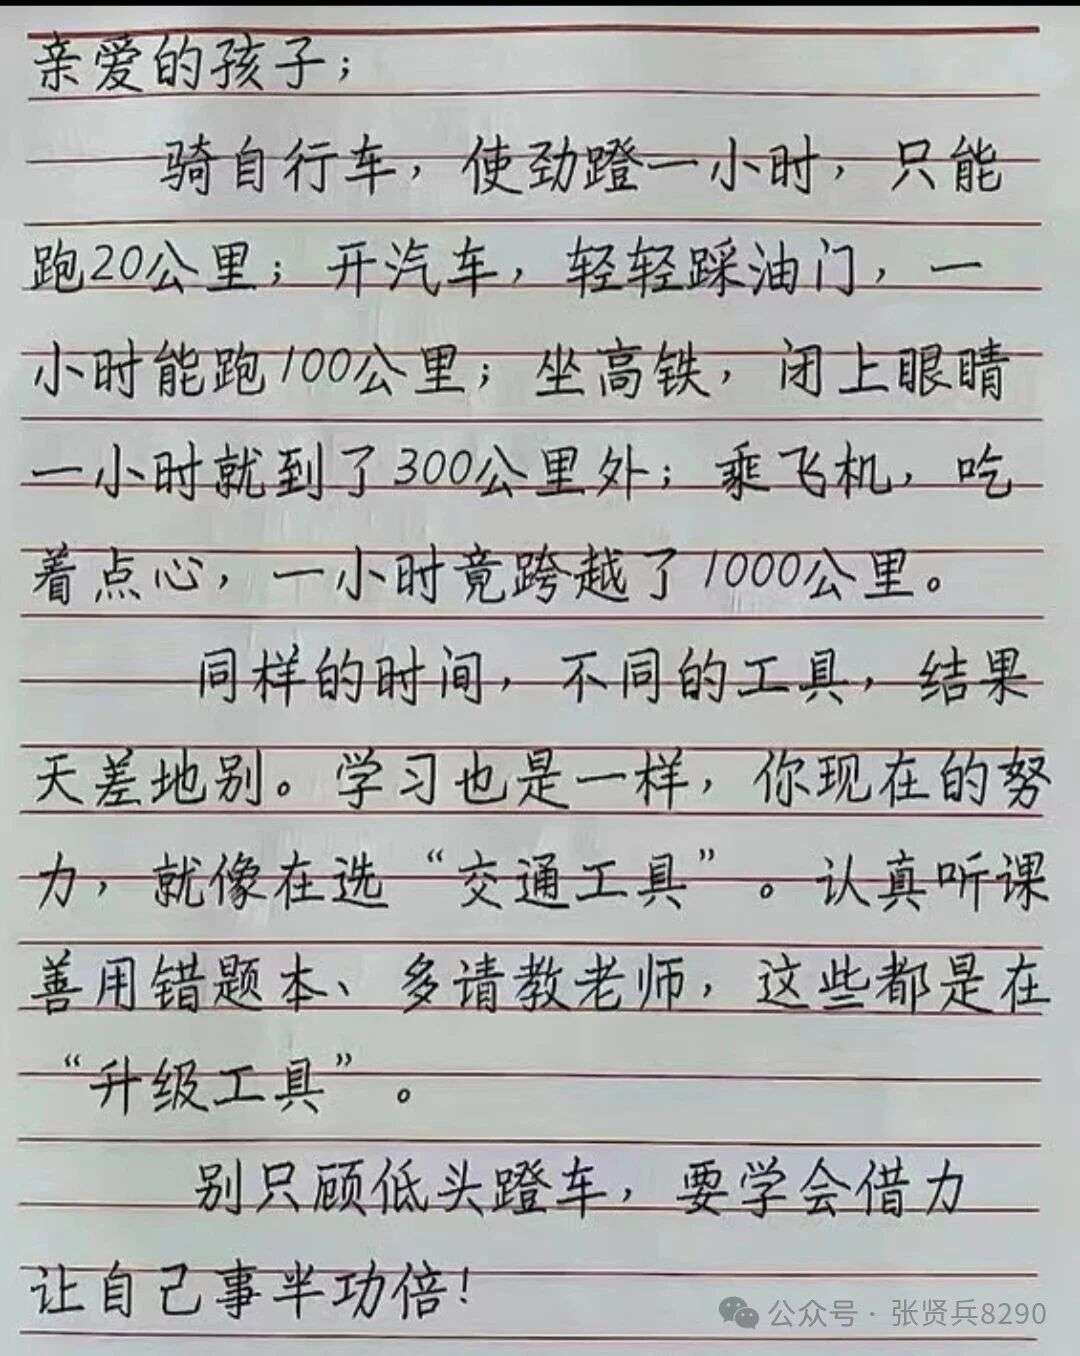 亲爱的孩子；
骑自行车，使劲蹬一小时，只能
跑20公里；开汽车，轻轻踩油门，一
小时能跑100公里；坐高铁，闭上眼睛
一小时就到了300公里外；乘飞机，吃
着点心，一小时竟跨越了1000公里。
同样的时间，不同的工具，结果
天差地别。学习也是一样，你现在的努
力，就像在选“交通工具”。认真听课
善用错题本、多请教老师，这些都是在
“升级工具”。
别只顾低头蹬车，要学会借力
让自己事半功倍！
公众号·张贤兵8290